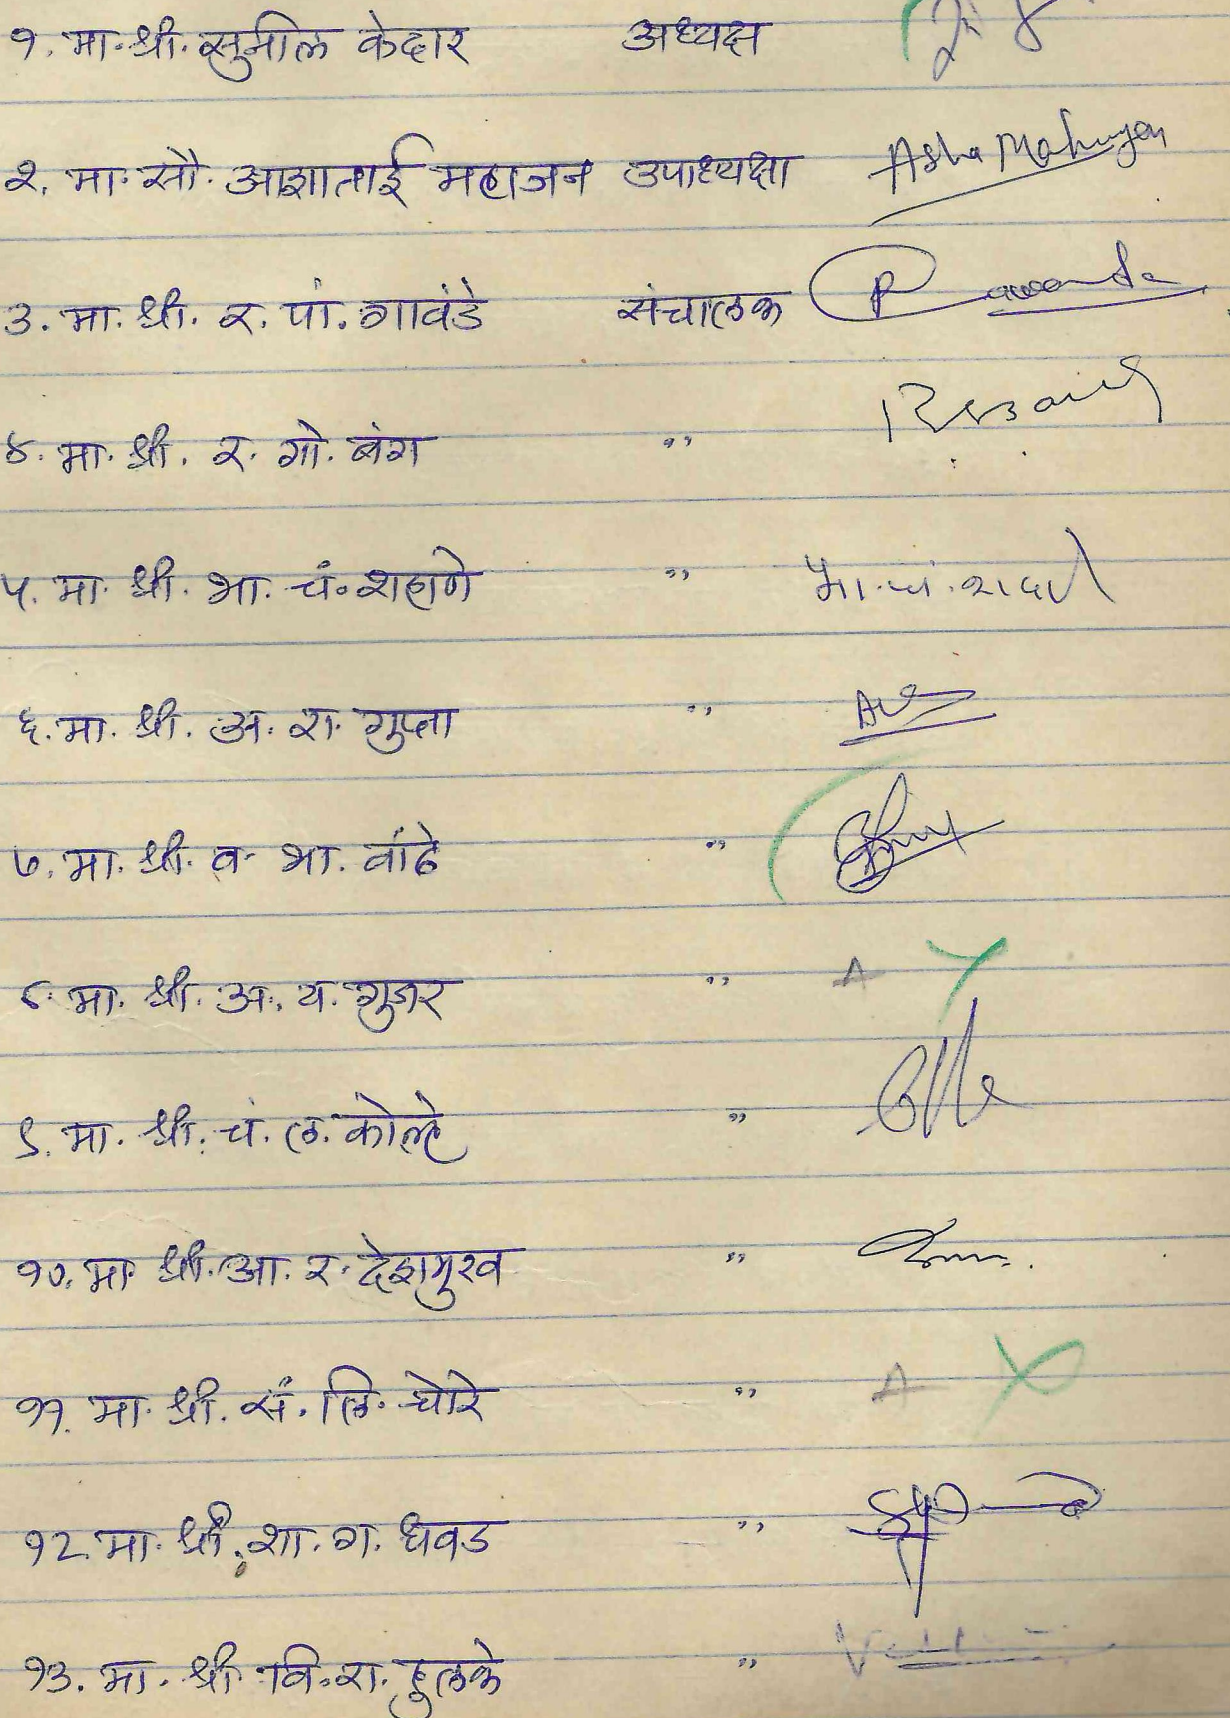 १. मा. श्री. सुनील केदार अध्यक्ष
२. मा. सौ. आशाताई महाजन उपाध्यक्षा Asha Mahajan
३. मा. श्री. र. पां. गावंडे संचालक
४. मा. श्री. र. गो. बंग ,,
५. मा. श्री. भा. चं. शहाणे ,, भा. चं.
६. मा. श्री. अ. रा. गुप्ता ,,
७. मा. श्री. व. भा. वांढे ,,
८. मा. श्री. अ. य. गुजर ,, A
९. मा. श्री. चं. ल. कोल्हे ,,
१०. मा. श्री. आ. र. देशमुख ,,
११. मा. श्री. सं. लि. घोरे ,, A
१२. मा. श्री. शा. ग. धवड ,,
१३. मा. श्री. वि. रा. हुलके ,,